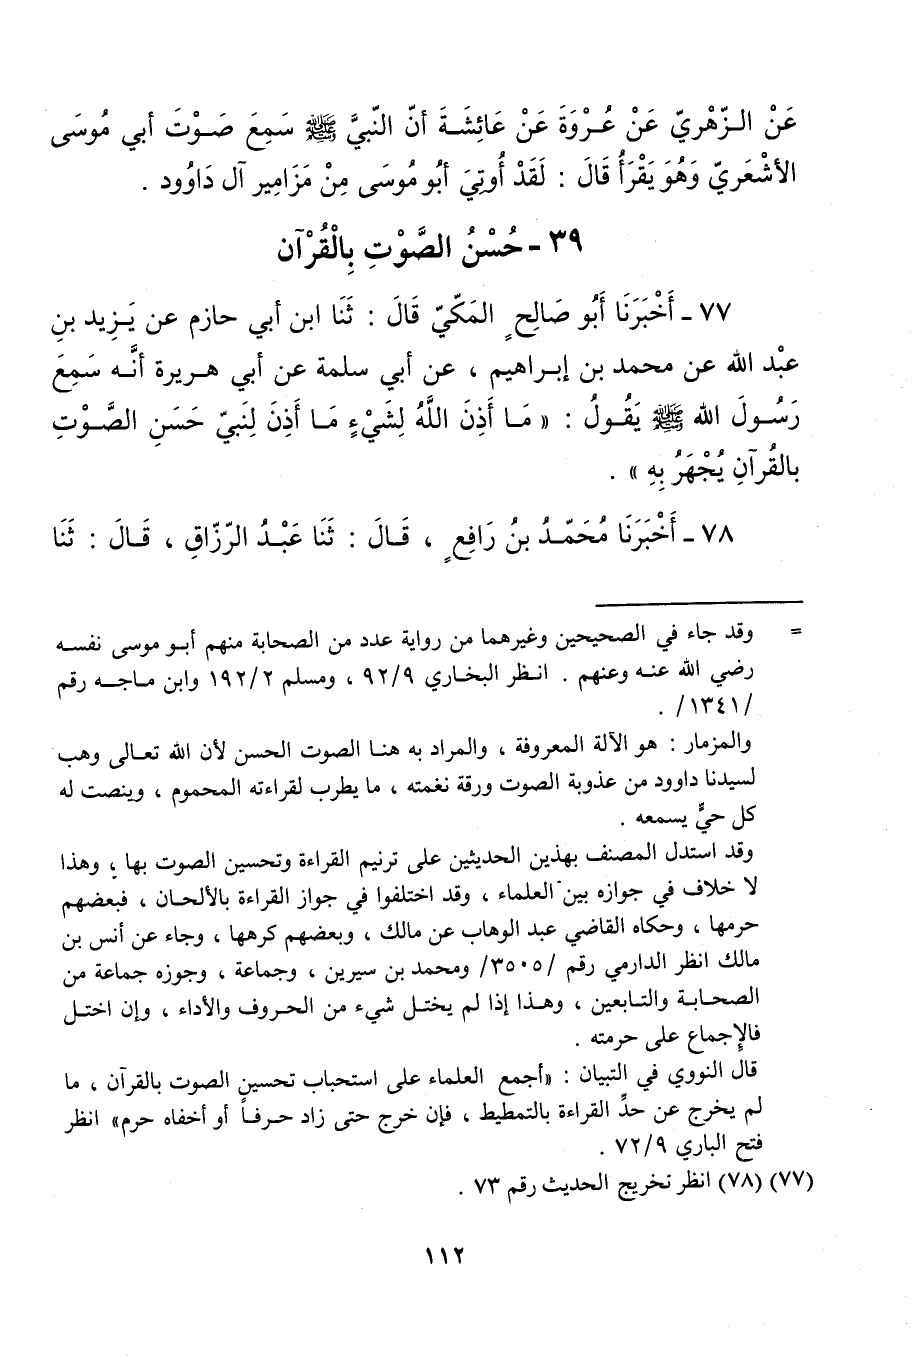 عَنْ الـزّهْريّ عَنْ عُـرْوَةَ عَنْ عَائِشَـةَ أنّ النّبيَّ ﷺ سَمِعَ صَـوْتَ أبي مُوسَى
الأشْعَريّ وَهُوَ يَقْرَأُ قَالَ : لَقَدْ أُوتِيَ أبُو مُوسَى مِنْ مَزَامِير آل دَاوُود .
٣٩ - حُسْنُ الصَّوْتِ بِالْقُرْآن
٧٧ - أَخْبَرَنَا أَبُو صَالِحٍ المَكّيّ قَالَ : ثَنَا ابن أبي حازم عن يَـزِيد بنِ
عبْد الله عن محمد بن إبـراهيم ، عن أبي سلمة عن أبي هـريرة أنَّـه سَمِعَ
رَسُـولَ الله ﷺ يَقُـولُ : « مَـا أَذِنَ اللَّهُ لِشَيْءٍ مَـا أَذِنَ لِنَبيّ حَسَنِ الصَّـوْتِ
بالقُرآنِ يُجْهَرُ بِهِ » .
٧٨ - أَخْبَرَنَا مُحَمّـدُ بنُ رَافِعٍ ، قَـالَ : ثَنَا عَبْـدُ الرّزّاقِ ، قَـالَ : ثَنَا
= وقد جاء في الصحيحين وغيرهما من رواية عدد من الصحابة منهم أبـو موسى نفسـه
رضي الله عنـه وعنهم . انـظر البخـاري ٩٢/٩ ، ومسلم ١٩٢/٢ وابن مـاجـه رقم
/١٣٤١/ .
والمزمار : هو الآلة المعروفة ، والمراد به هنـا الصوت الحسن لأن الله تعـالى وهب
لسيدنا داوود من عذوبة الصوت ورقة نغمته ، ما يطرب لقراءته المحموم ، وينصت له
كل حيٍّ يسمعه .
وقد استدل المصنف بهذين الحديثين على ترنيم القراءة وتحسين الصوت بها ، وهذا
لا خلاف في جوازه بين العلماء ، وقد اختلفوا في جواز القراءة بالألحـان ، فبعضهم
حرمها ، وحكاه القاضي عبد الوهاب عن مالك ، وبعضهم كرهها ، وجاء عن أنس بن
مالك انظر الدارمي رقم /٣٥٠٥/ ومحمد بن سيرين ، وجماعة ، وجوزه جماعة من
الصحـابـة والتـابعين ، وهـذا إذا لم يختـل شيء من الحـروف والأداء ، وإن اختـل
فالإِجماع على حرمته .
قال النووي في التبيان : «أجمع العلماء على استحباب تحسين الصوت بالقرآن ، ما
لم يخرج عن حدِّ القراءة بالتمطيط ، فإن خرج حتى زاد حـرفـاً أو أخفاه حرم» انظر
فتح الباري ٧٢/٩ .
(٧٧) (٧٨) انظر تخريج الحديث رقم ٧٣ .
١١٢